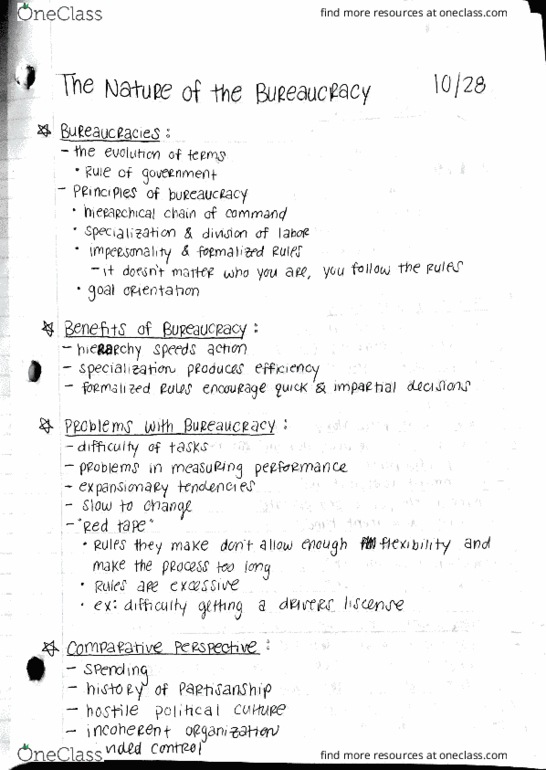 OneClass find more resources at oneclass.com
The Nature of the Bureaucracy 10/28
Bureaucracies:
- the evolution of terms
• Rule of government
- Principles of bureaucracy
• hierarchical chain of command
• specialization & division of labor
• impersonality & formalized rules
- it doesn't matter who you are, you follow the rules
• goal orientation
Benefits of Bureaucracy:
- hierarchy speeds action
- specialization produces efficiency
- formalized rules encourage quick & impartial decisions
Problems with Bureaucracy:
- difficulty of tasks
- problems in measuring performance
- expansionary tendencies
- slow to change
- "Red tape"
• Rules they make don't allow enough flexibility and
make the process too long
• Rules are excessive
• ex: difficulty getting a drivers liscense
Comparative Perspective:
- spending
- history of partisanship
- hostile political culture
- incoherent organization
nded control
OneClass find more resources at oneclass.com